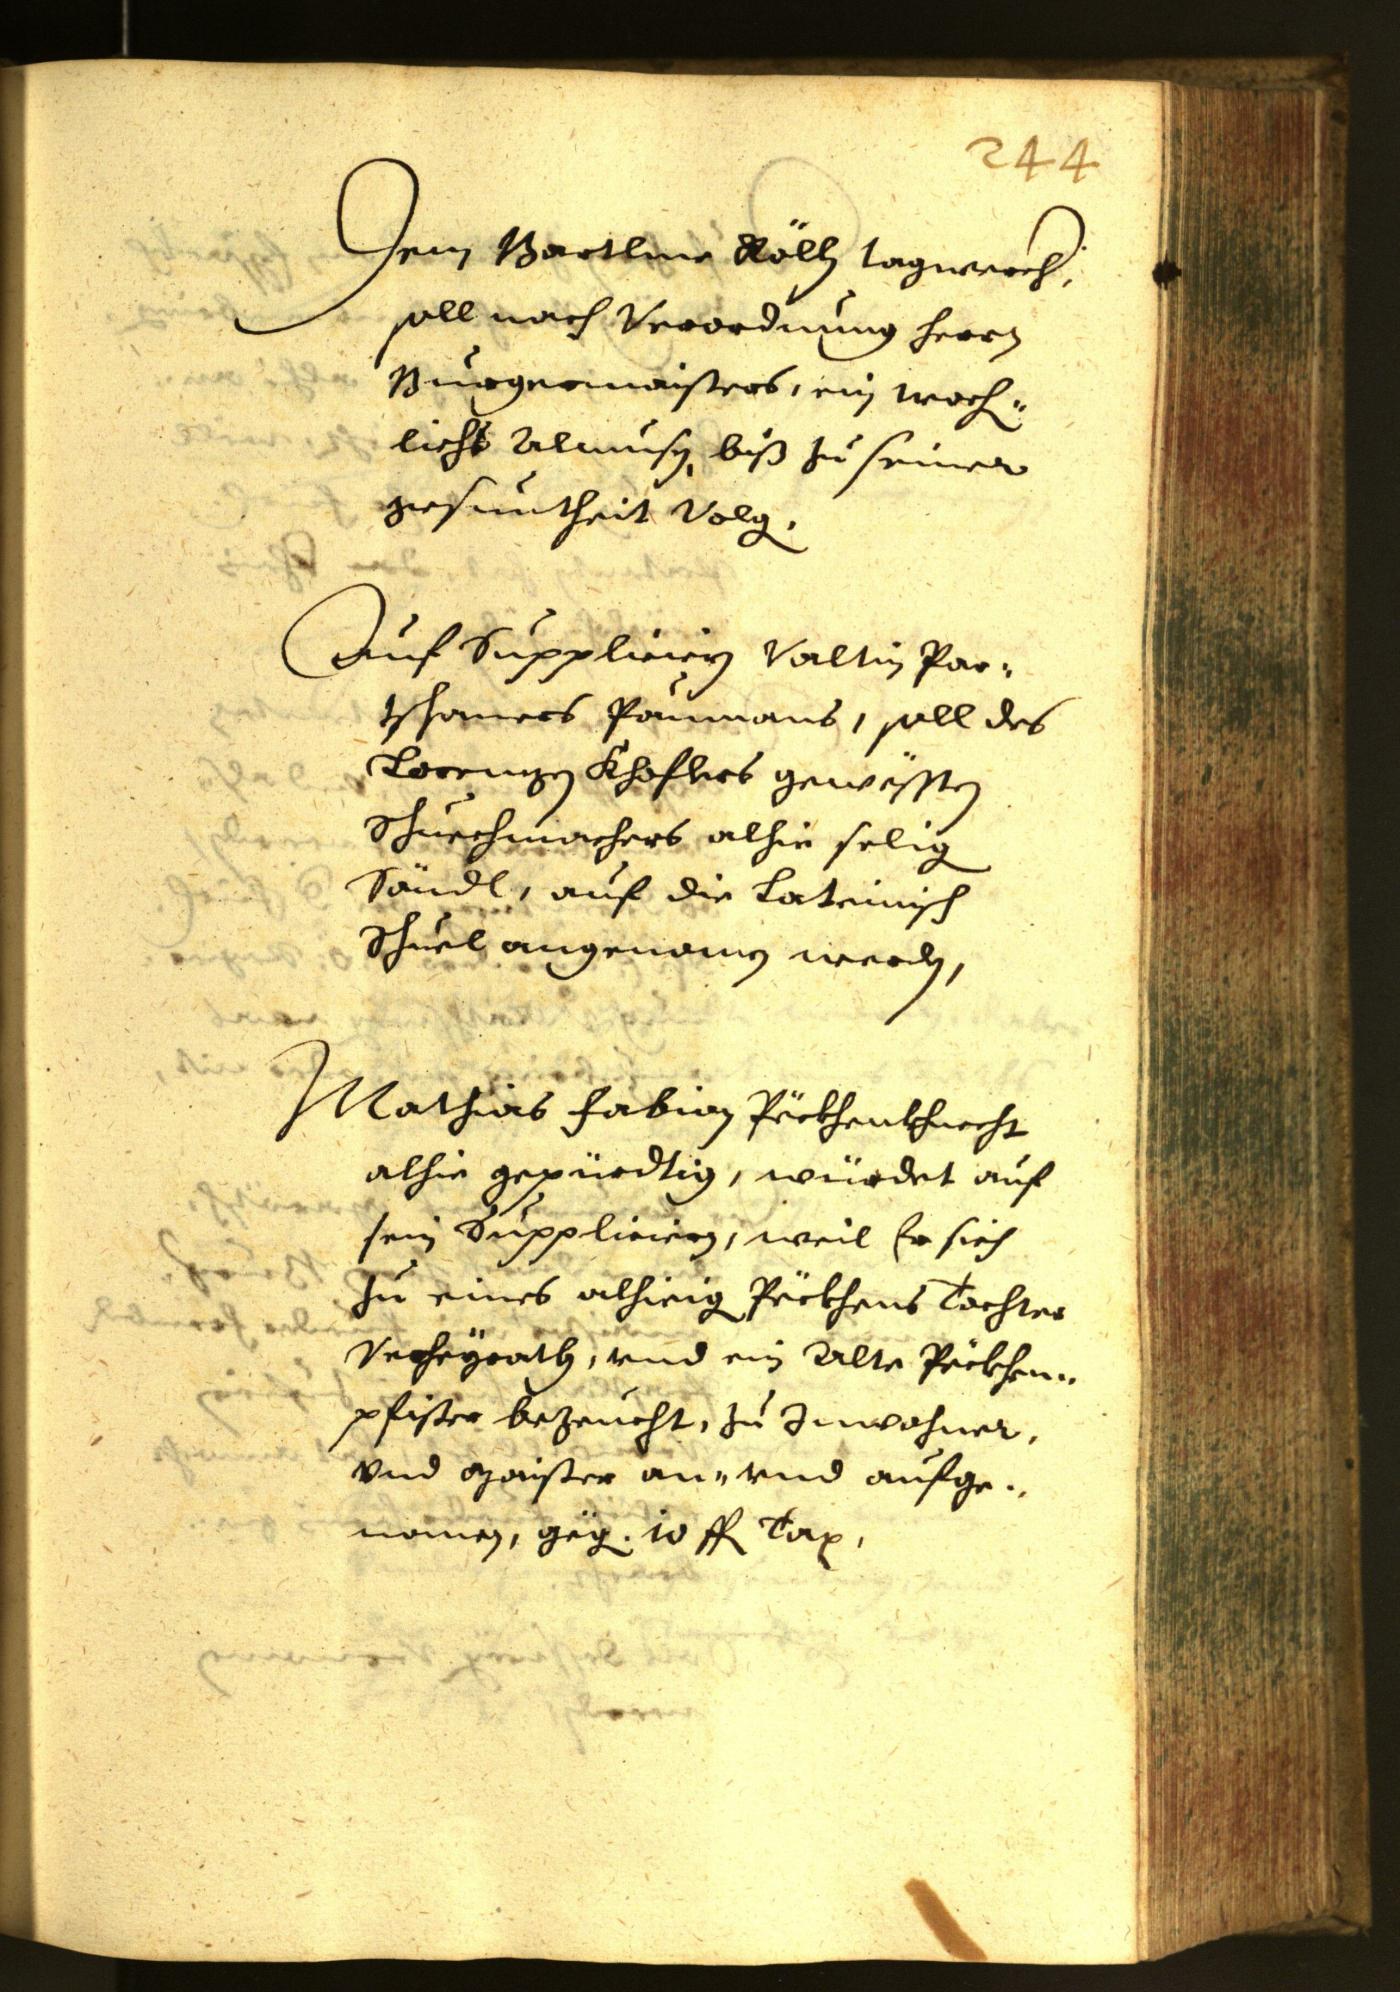 244
Dem Bartlme Röll tagwerch,
soll nach Verordnung herrn
Burgermaisters, ein woch-
lichs Almusen, biß zu seiner
gesuntheit Volg.
Auf Supplicirn Valtin Par-
tschoners Paumans, soll des
Lorenzen Khoflers gewesten
Schuechmachers alhie selig
Söndl, auf die Lateinisch
Schuel angenomen werden,
Mathias Fabian Peckhenkhnecht
alhie gepürdtig, würdet auf
sein Suppliciern, weil Er sich
zu eines alhieig Peckhens Tochter
Verheyrath, vnd ein Alte Peckhen-
pfister bezeucht, zu Inwohner,
vnd Maister an- vnd aufge-
nomen, geg. 10 fl Tax,